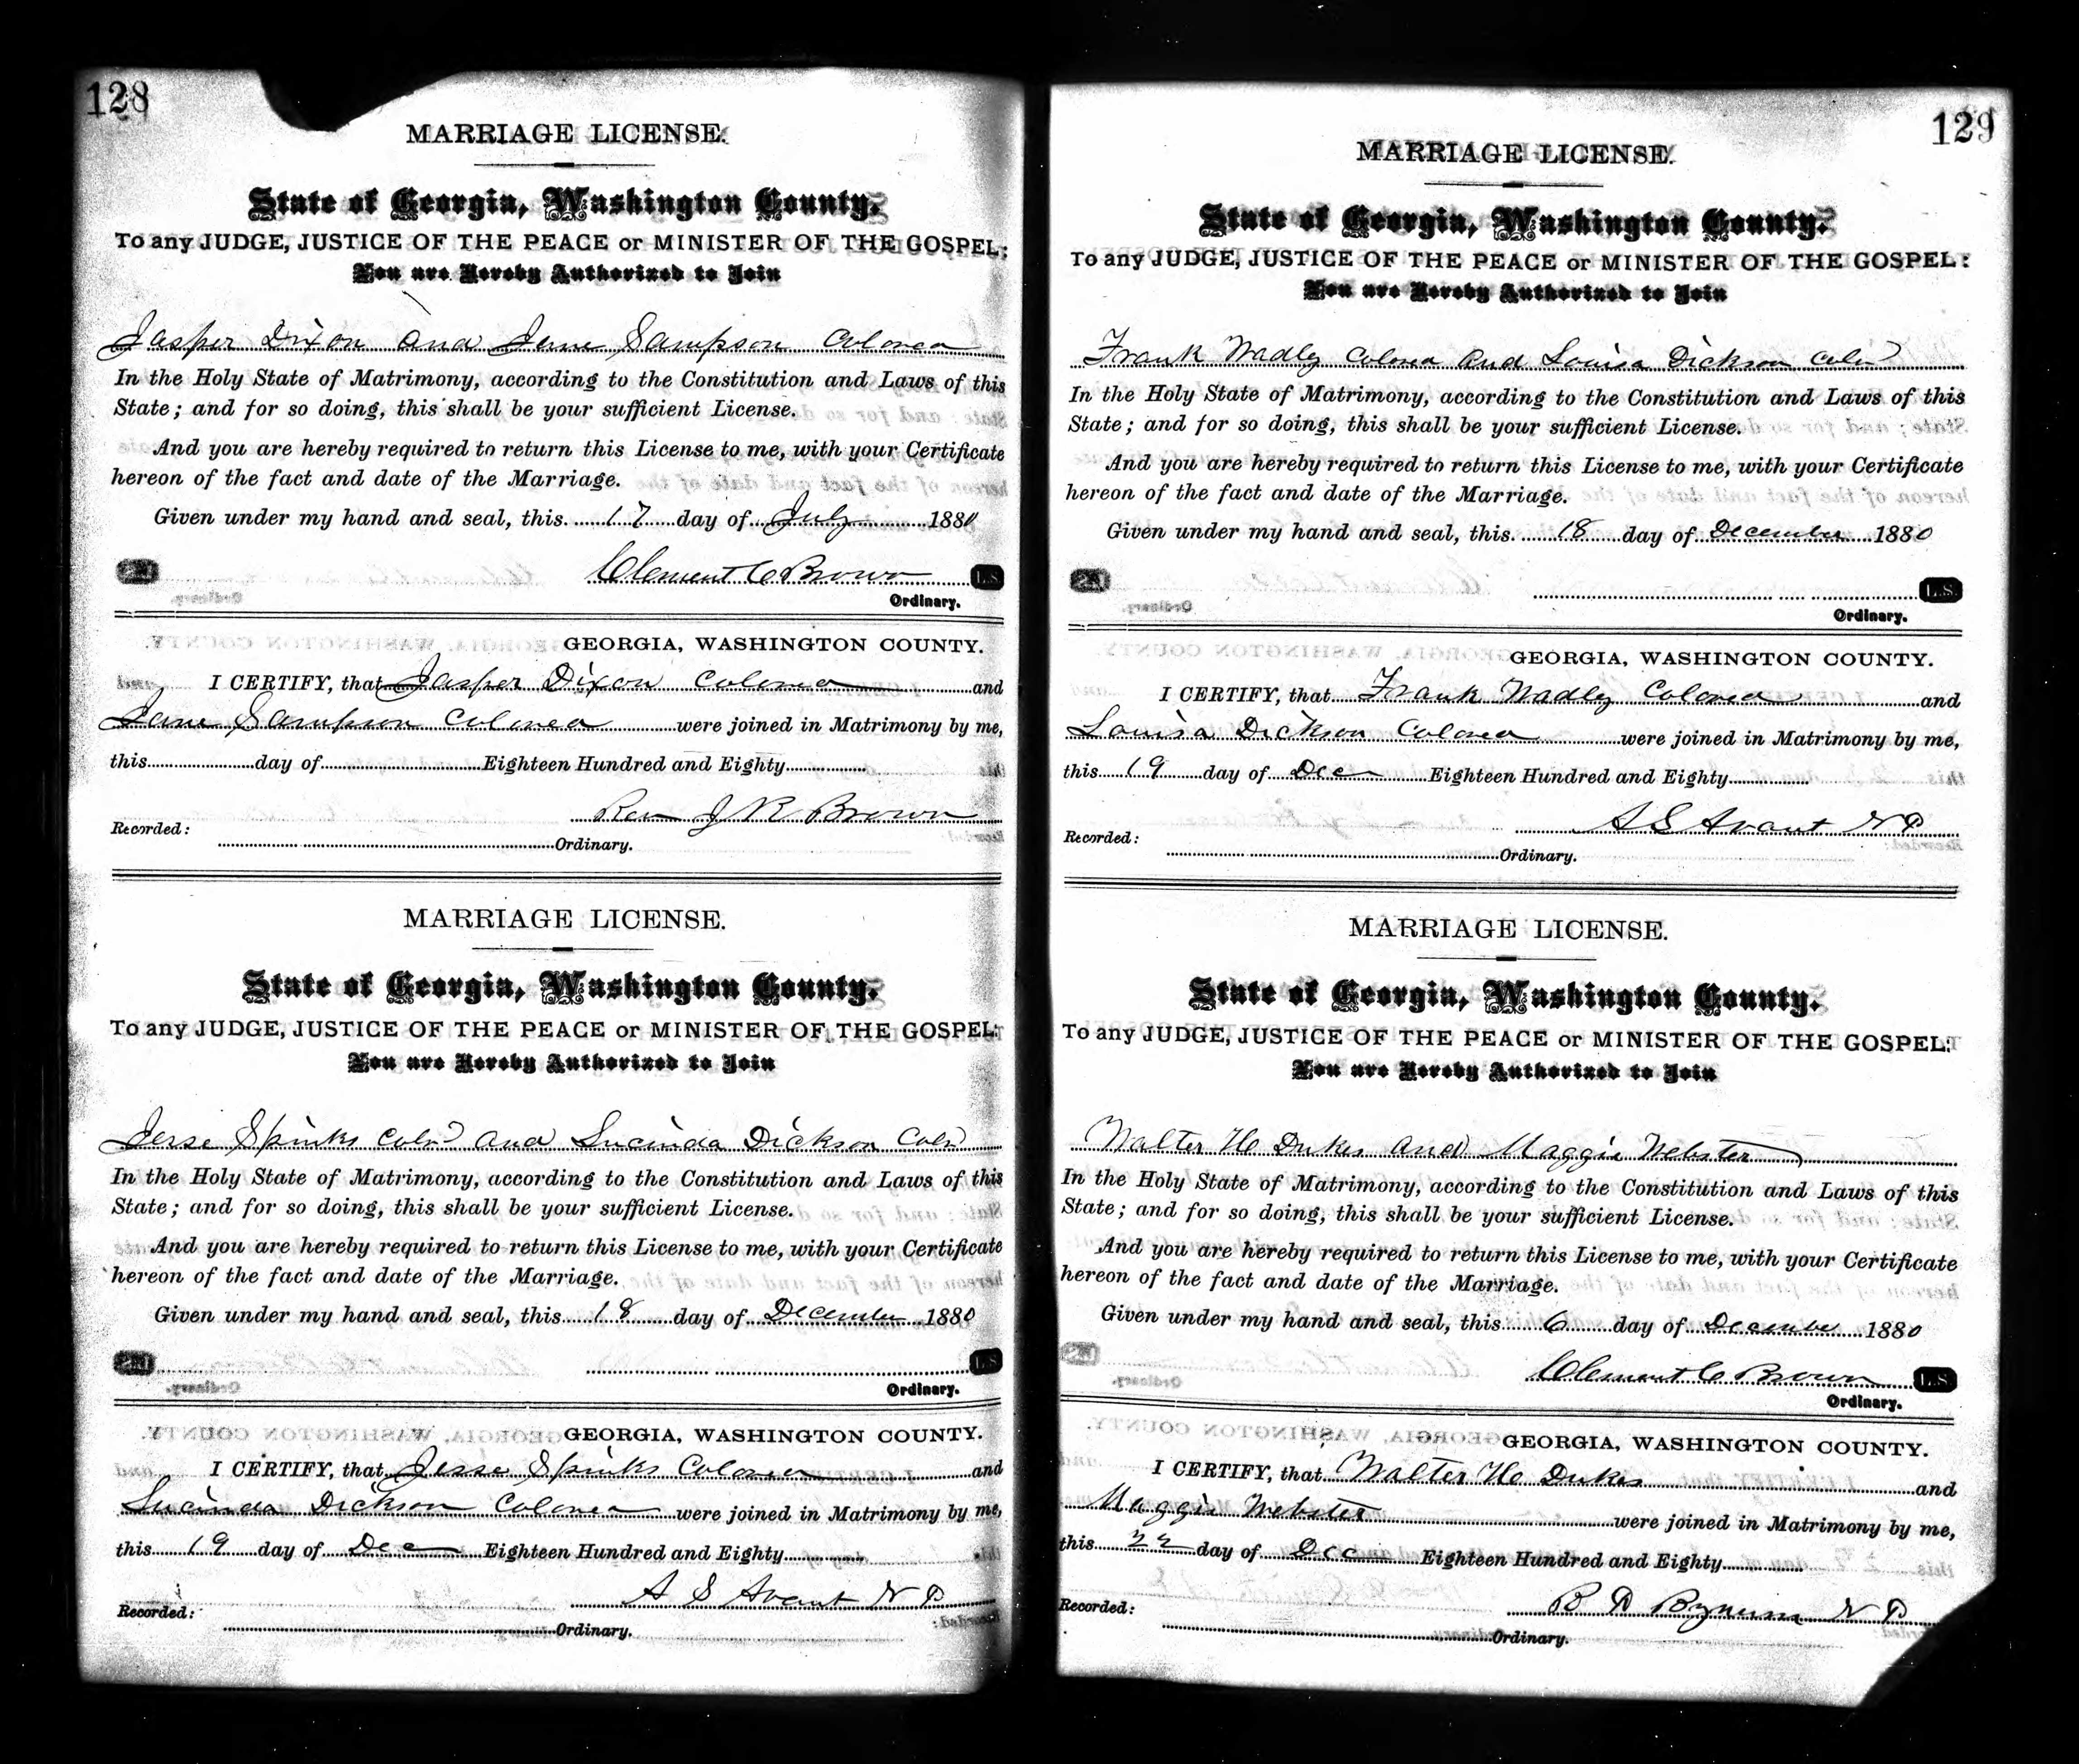 128
MARRIAGE LICENSE.
State of Georgia, Washington County.
To any JUDGE, JUSTICE OF THE PEACE or MINISTER OF THE GOSPEL:
You are Hereby Authorized to Join
Jasper Dixon and Jane Sampson Colored
In the Holy State of Matrimony, according to the Constitution and Laws of this
State; and for so doing, this shall be your sufficient License.
And you are hereby required to return this License to me, with your Certificate
hereon of the fact and date of the Marriage.
Given under my hand and seal, this 17 day of July 1880
Clement C Brown L.S.
Ordinary.
GEORGIA, WASHINGTON COUNTY.
I CERTIFY, that Jasper Dixon Colored and
Jane Sampson Colored were joined in Matrimony by me,
this day of Eighteen Hundred and Eighty
Rev J R Brown
Recorded:
Ordinary.
MARRIAGE LICENSE.
State of Georgia, Washington County.
To any JUDGE, JUSTICE OF THE PEACE or MINISTER OF THE GOSPEL:
You are Hereby Authorized to Join
Jesse Spinks Cold and Lucinda Dickson Cold
In the Holy State of Matrimony, according to the Constitution and Laws of this
State; and for so doing, this shall be your sufficient License.
And you are hereby required to return this License to me, with your Certificate
hereon of the fact and date of the Marriage.
Given under my hand and seal, this 18 day of December 1880
L.S.
Ordinary.
GEORGIA, WASHINGTON COUNTY.
I CERTIFY, that Jesse Spinks Colored and
Lucinda Dickson Colored were joined in Matrimony by me,
this 19 day of Dec Eighteen Hundred and Eighty
A S Avant N P
Recorded:
Ordinary.
129
MARRIAGE LICENSE.
State of Georgia, Washington County.
To any JUDGE, JUSTICE OF THE PEACE or MINISTER OF THE GOSPEL:
You are Hereby Authorized to Join
Frank Wadly Colored and Louisa Dickson Cold
In the Holy State of Matrimony, according to the Constitution and Laws of this
State; and for so doing, this shall be your sufficient License.
And you are hereby required to return this License to me, with your Certificate
hereon of the fact and date of the Marriage.
Given under my hand and seal, this 18 day of December 1880
L.S.
Ordinary.
GEORGIA, WASHINGTON COUNTY.
I CERTIFY, that Frank Wadly Colored and
Louisa Dickson Colored were joined in Matrimony by me,
this 19 day of Dec Eighteen Hundred and Eighty
A S Avant N P
Recorded:
Ordinary.
MARRIAGE LICENSE.
State of Georgia, Washington County.
To any JUDGE, JUSTICE OF THE PEACE or MINISTER OF THE GOSPEL:
You are Hereby Authorized to Join
Walter H Dukes and Maggie Webster
In the Holy State of Matrimony, according to the Constitution and Laws of this
State; and for so doing, this shall be your sufficient License.
And you are hereby required to return this License to me, with your Certificate
hereon of the fact and date of the Marriage.
Given under my hand and seal, this 6 day of December 1880
Clement C Brown L.S.
Ordinary.
GEORGIA, WASHINGTON COUNTY.
I CERTIFY, that Walter H Dukes and
Maggie Webster were joined in Matrimony by me,
this 22 day of Dec Eighteen Hundred and Eighty
B D Bynum N P
Recorded:
Ordinary.